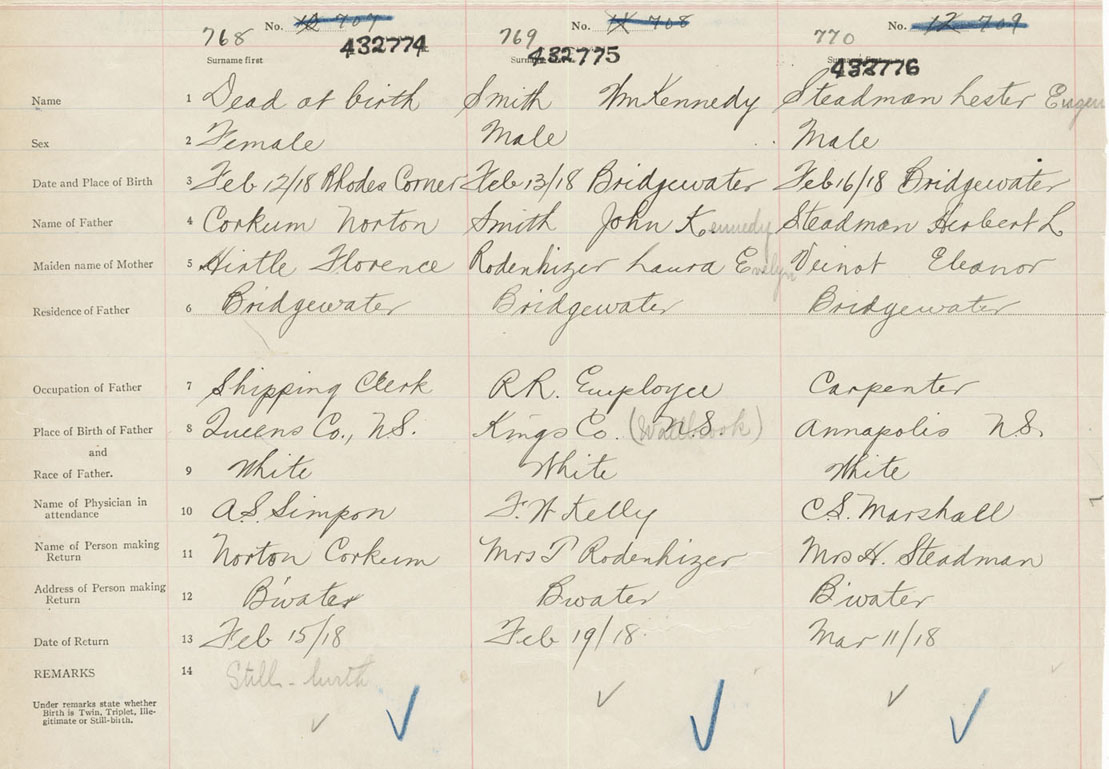 No. 10 707 No. 11 708 No. 12 709
768 432774 769 432775 770 432776
Surname first Surname first Surname first
Name 1 Dead at birth Smith Wm Kennedy Steadman Lester Eugen
Sex 2 Female Male Male
Date and Place of Birth 3 Feb 12/18 Rhodes Corner Feb 13/18 Bridgewater Feb 16/18 Bridgewater
Name of Father 4 Corkum Norton Smith John Kennedy Steadman Herbert L
Maiden name of Mother 5 Hirtle Florence Rodenhizer Laura Evelyn Veinot Eleanor
Residence of Father 6 Bridgewater Bridgewater Bridgewater
Occupation of Father 7 Shipping Clerk R.R. Employee Carpenter
Place of Birth of Father 8 Queens Co., N.S. Kings Co. (Wallbrook) N.S. Annapolis N.S.
and
Race of Father. 9 White White White
Name of Physician in
attendance 10 A.S. Simpon F. W Kelly C.S. Marshall
Name of Person making
Return 11 Norton Corkum Mrs T Rodenhizer Mrs H. Steadman
Address of Person making
Return 12 B'water Bwater B'water
Date of Return 13 Feb 15/18 Feb 19/18 Mar 11/18
REMARKS 14 Still-birth
Under remarks state whether
Birth is Twin, Triplet, Ille-
gitimate or Still-birth.